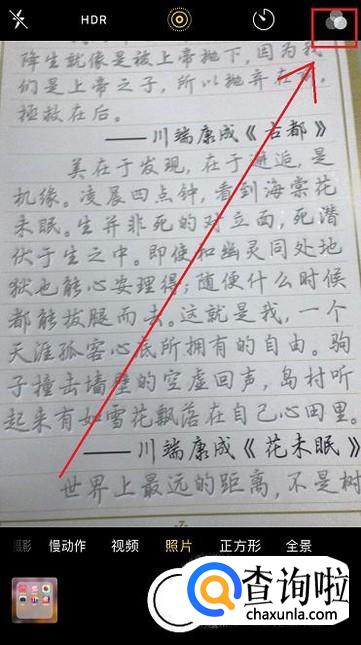 HDR
降生就像是被上帝抛下,因为我
们是上帝之子,所以抛弃在前,
拯救在后。
——川端康成《古都》
美在于发现,在于邂逅,是
机缘。凌晨四点钟,看到海棠花
未眠。生并非死的对立面,死潜
伏于生之中。即使和幽灵同处地
狱也能心安理得;随便什么时候
都能拔腿而去。这就是我,一个
天涯孤客心底所拥有的自由。驹
子撞击墙壁的空虚回声,岛村听
起来有如雪花飘落在自己心田里。
——川端康成《花未眠》
世界上最远的距离,不是树
摄影 慢动作 视频 照片 正方形 全景
查询啦
chaxunla.com